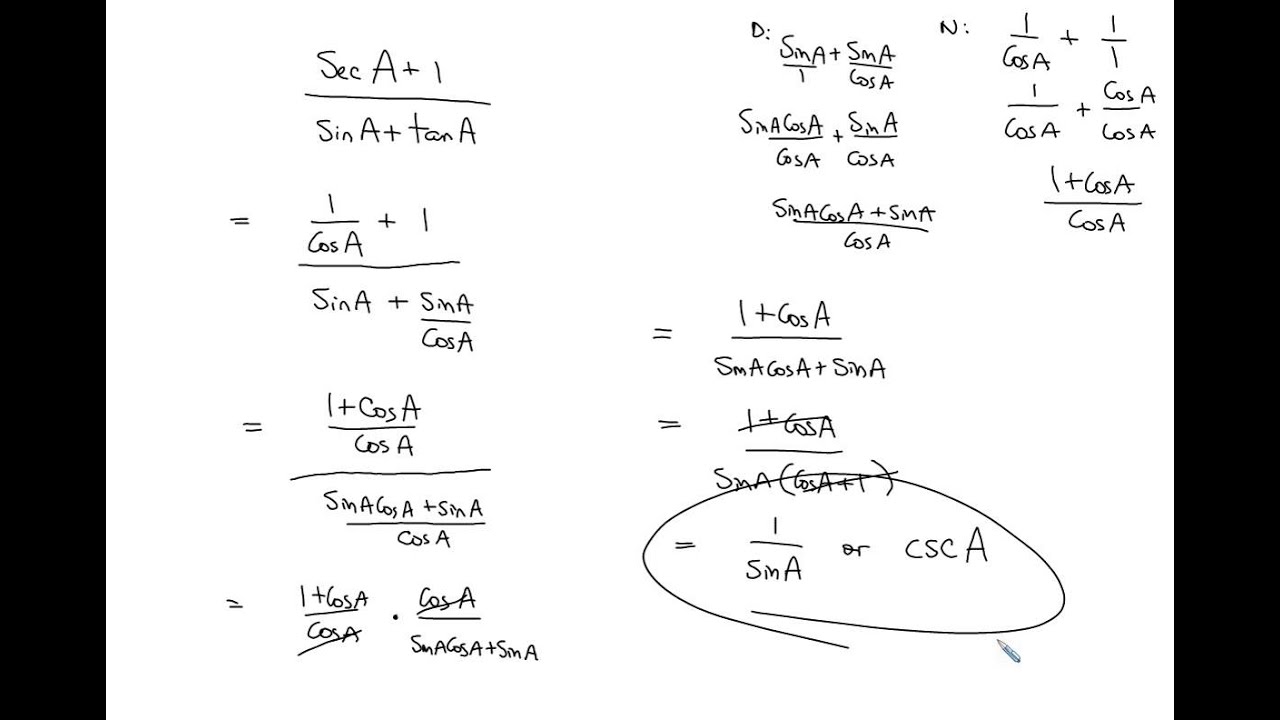 sec A + 1
sinA + tanA
= 1/cosA + 1
sinA + sinA/cosA
= 1+cosA/cosA
sinAcosA + sinA/cosA
= 1+cosA/cosA · cosA/sinAcosA+sinA
D: sinA/1 + sinA/cosA
sinAcosA/cosA + sinA/cosA
sinAcosA + sinA/cosA
N: 1/cosA + 1/1
1/cosA + cosA/cosA
1+cosA/cosA
= 1+cosA/sinAcosA + sinA
= 1+cosA/sinA(cosA+1)
= 1/sinA or csc A